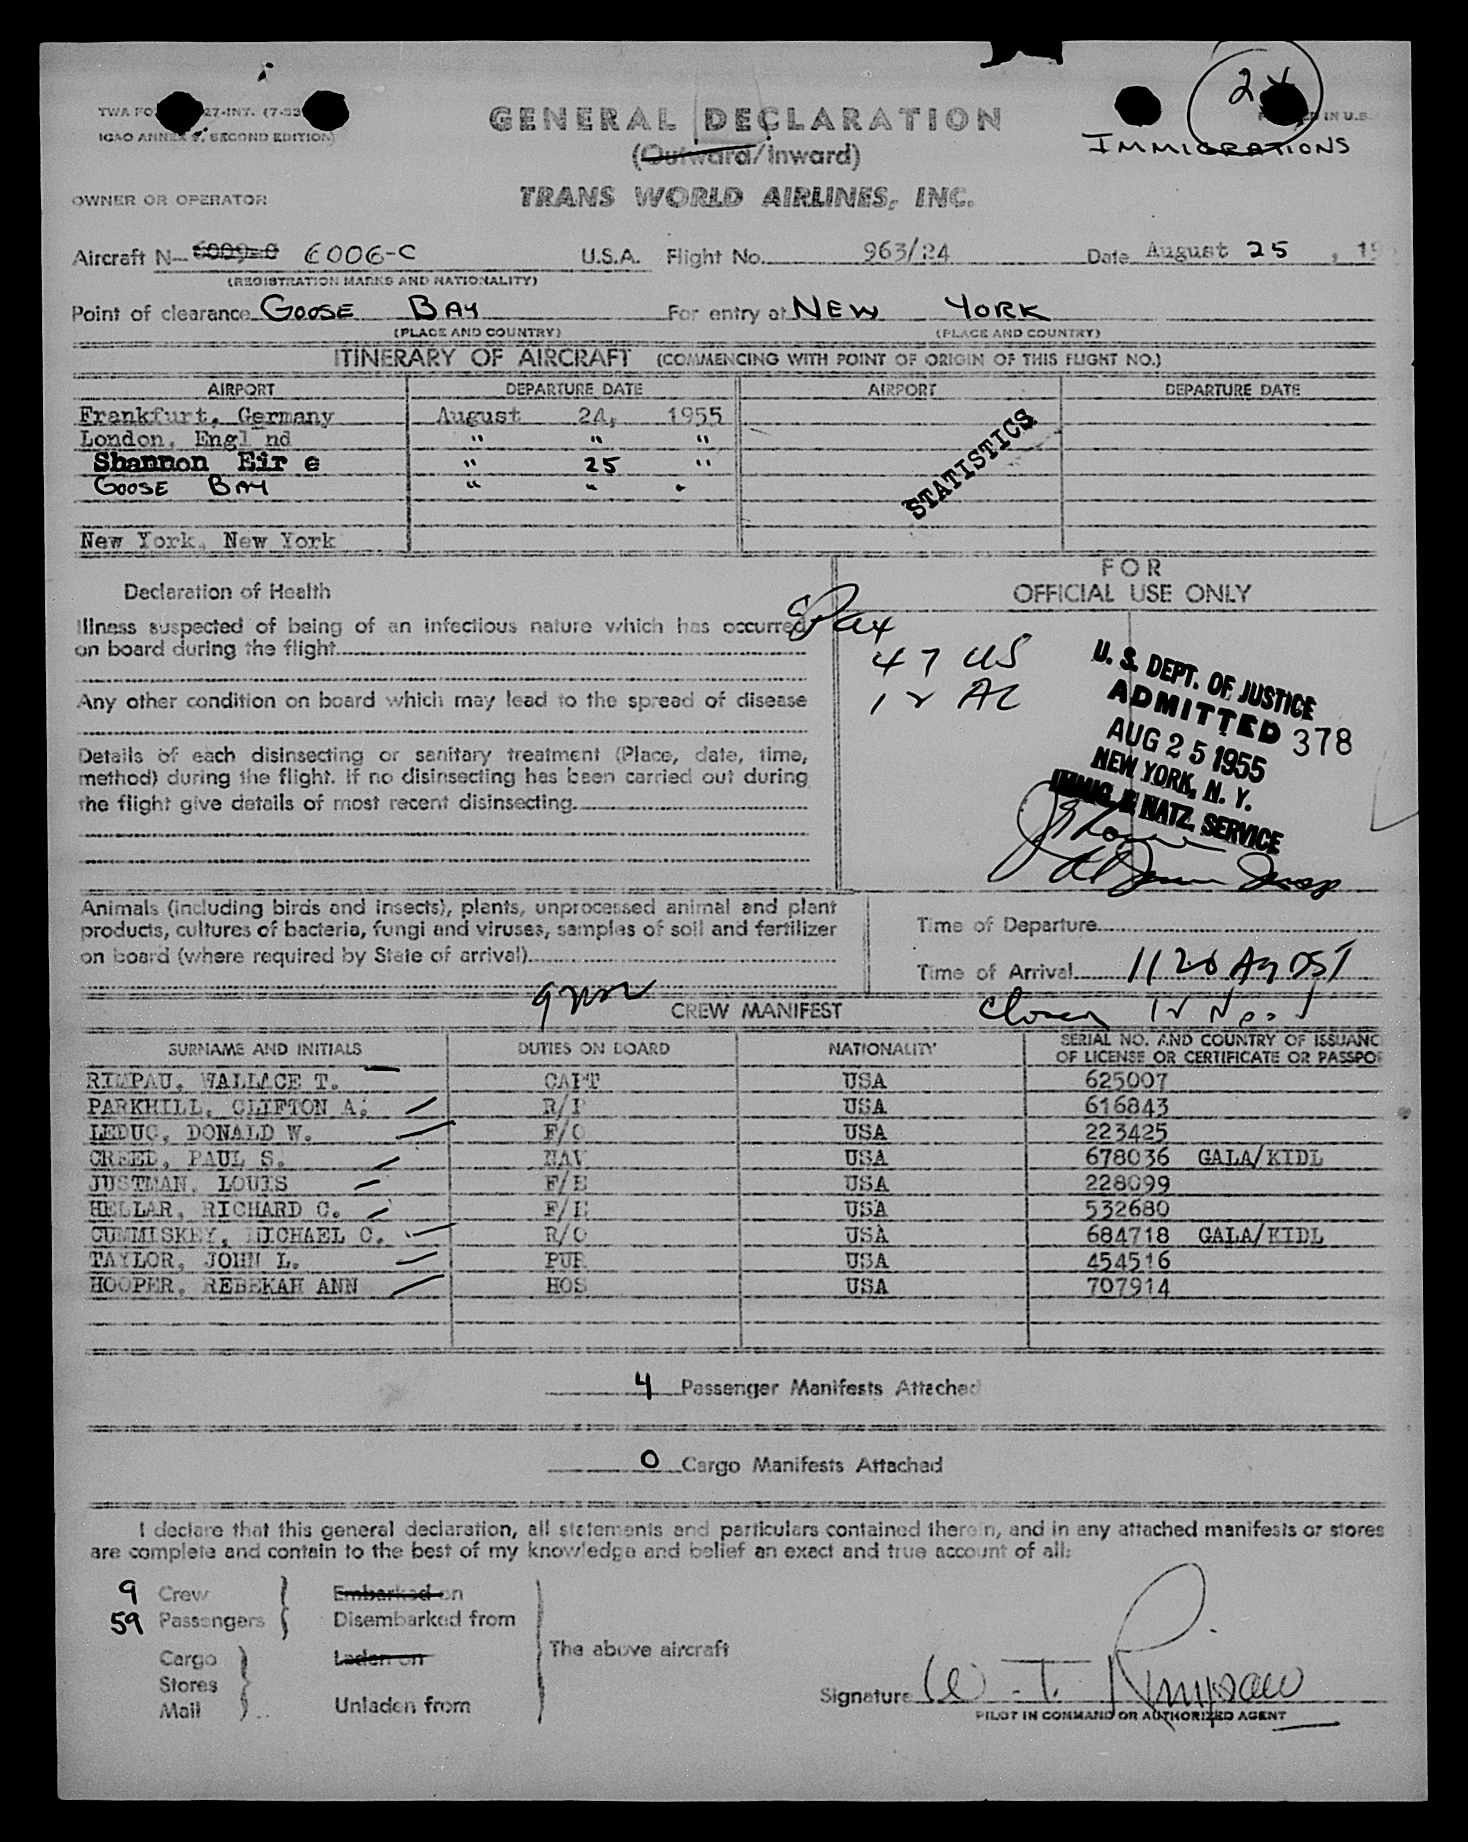 24
TWA FO 27-INT. (7-53
ICAO ANNEX 9, SECOND EDITION)
GENERAL DECLARATION
IN U.S.
IMMIGRATIONS
(Outward/Inward)
OWNER OR OPERATOR
TRANS WORLD AIRLINES, INC.
Aircraft N— 6009-C 6006-C U.S.A. Flight No. 963/24 Date August 25 , 19
(REGISTRATION MARKS AND NATIONALITY)
Point of clearance GOOSE BAY For entry at NEW YORK
(PLACE AND COUNTRY) (PLACE AND COUNTRY)
ITINERARY OF AIRCRAFT (COMMENCING WITH POINT OF ORIGIN OF THIS FLIGHT NO.)
AIRPORT DEPARTURE DATE AIRPORT DEPARTURE DATE
Frankfurt, Germany August 24, 1955
London, Engl nd " " "
Shannon Eir e " 25 "
GOOSE BAY " " "
STATISTICS
New York, New York
Declaration of Health
FOR
OFFICIAL USE ONLY
Illness suspected of being of an infectious nature which has occurred
on board during the flight
Pax
47 US
12 AL
Any other condition on board which may lead to the spread of disease
U. S. DEPT. OF JUSTICE
ADMITTED 378
AUG 25 1955
NEW YORK, N. Y.
IMMIG. & NATZ. SERVICE
Details of each disinsecting or sanitary treatment (Place, date, time,
method) during the flight. If no disinsecting has been carried out during
the flight give details of most recent disinsecting
Animals (including birds and insects), plants, unprocessed animal and plant
products, cultures of bacteria, fungi and viruses, samples of soil and fertilizer
on board (where required by State of arrival)
Time of Departure
Time of Arrival 1120 AM DST
CREW MANIFEST
SURNAME AND INITIALS DUTIES ON BOARD NATIONALITY SERIAL NO. AND COUNTRY OF ISSUANC
OF LICENSE OR CERTIFICATE OR PASSPO
RIMPAU, WALLACE T. CAPT USA 625007
PARKHILL, CLIFTON A. R/P USA 616843
LEDUC, DONALD W. F/O USA 223425
CREED, PAUL S. NAV USA 678036 GALA/KIDL
JUSTMAN, LOUIS F/E USA 228099
HELLAR, RICHARD C. F/E USA 532680
CUMMISKEY, MICHAEL C. R/O USA 684718 GALA/KIDL
TAYLOR, JOHN L. PUR USA 454516
HOOPER, REBEKAH ANN HOS USA 707914
4 Passenger Manifests Attached
0 Cargo Manifests Attached
I declare that this general declaration, all statements and particulars contained therein, and in any attached manifests or stores
are complete and contain to the best of my knowledge and belief an exact and true account of all:
9 Crew Embarked on
59 Passengers Disembarked from
The above aircraft
Cargo Laden on
Stores
Mail Unladen from
Signature W. T. Rimpau
PILOT IN COMMAND OR AUTHORIZED AGENT